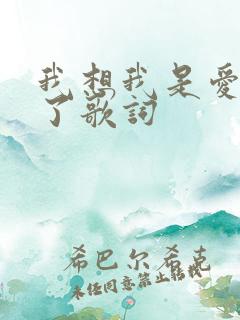 我想我是爱
了歌词
希巴尔希克
未经同意禁止转载